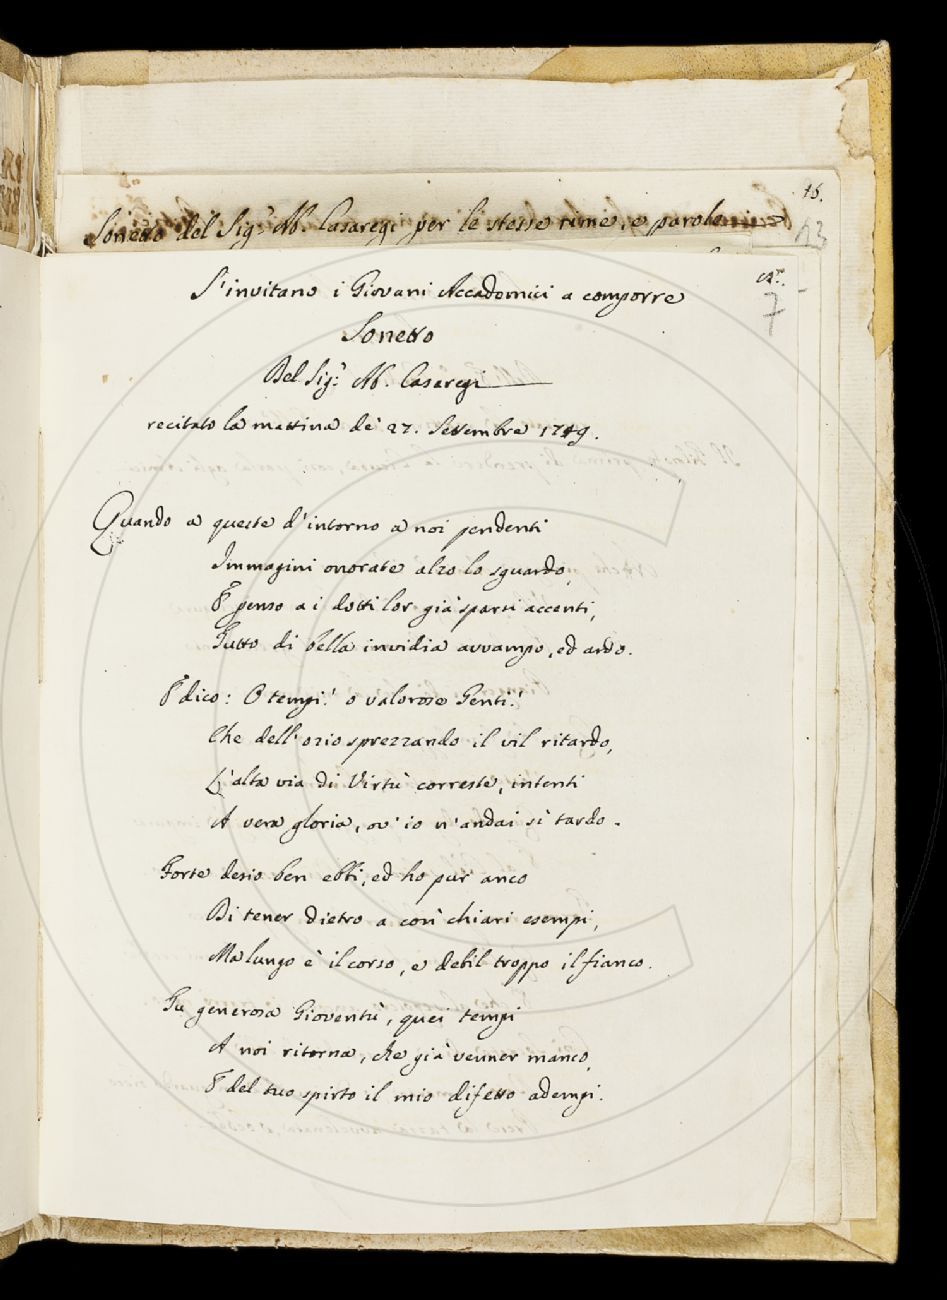 16.
Sonetto del Sig.r Ab. Casaregi per le stesse rime, e parole
13
S'invitano i Giovani Accademici a comporre
7
Sonetto
Del Sig.r Ab. Casaregi
recitato la mattina de' 27. Settembre 1749.
Quando a queste d'intorno a noi pendenti
Immagini onorate alzo lo sguardo,
E penso a i dotti lor già sparsi accenti,
Tutto di bella invidia avvampo, ed ardo.
E dico: O tempi! o valorose Genti!
Che dell'ozio sprezzando il vil ritardo,
L'alta via di Virtù correste, intenti
A vera gloria, ov' io n'andai sì tardo.
Forte desio ben ebbi, ed ho pur anco
Di tener dietro a così chiari esempi,
Ma lungo è il corso, e debil troppo il fianco.
Tu generosa Gioventù, quei tempi
A noi ritorna, che già venner manco,
E del tuo spirto il mio difetto adempi.